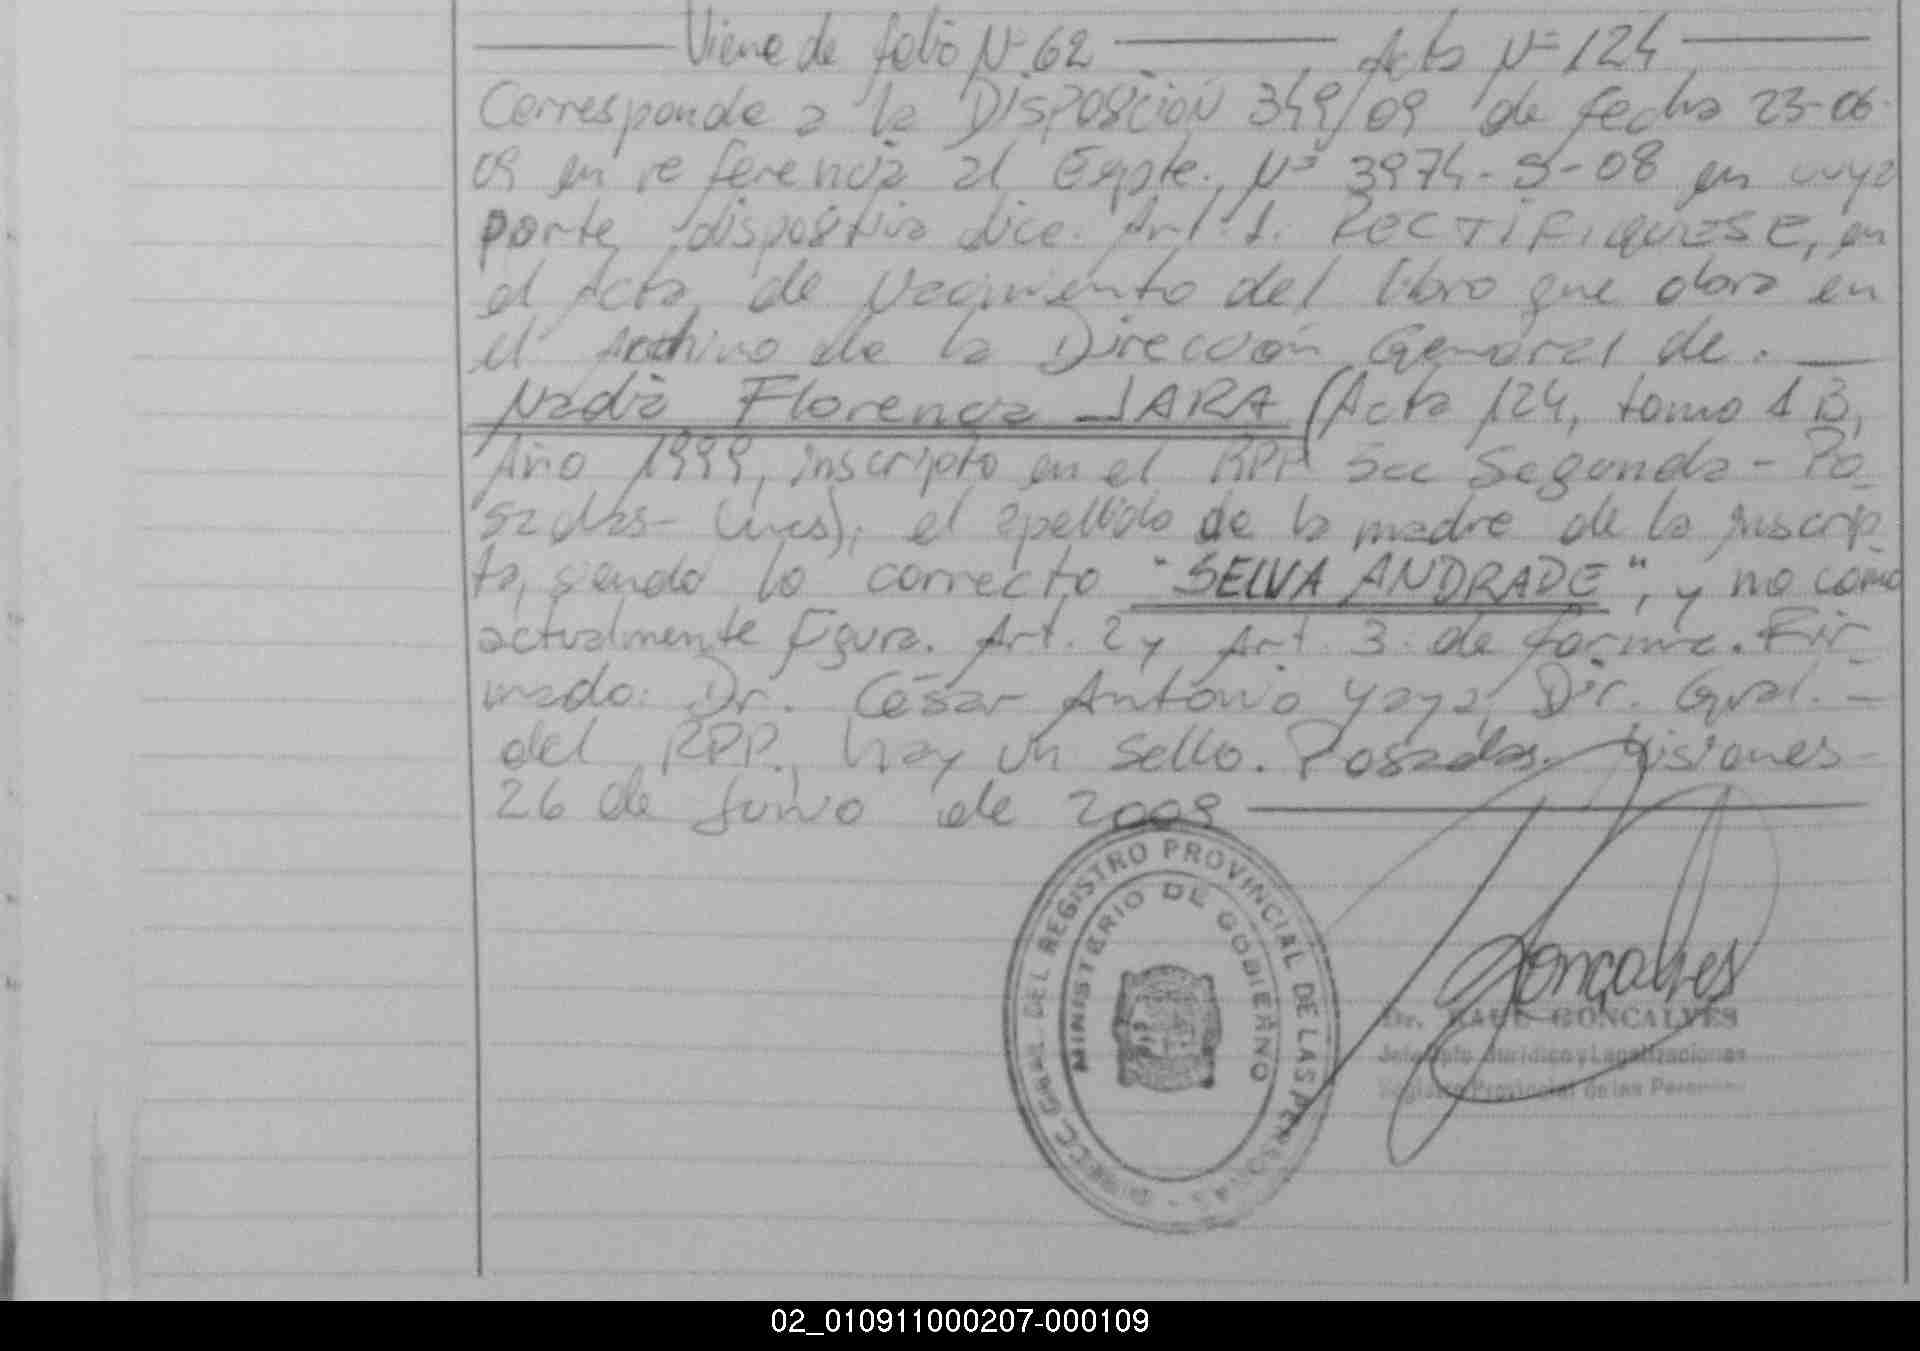 Viene de folio Nº 62 Acta Nº 124
Corresponde a la Disposición 349/09 de fecha 23-06-
09 en referencia al Expte. Nº 3974-S-08 en cuya
parte dispositiva dice. Art. 1. RECTIFIQUESE, en
el Acta de Nacimiento del libro que obra en
el Archivo de la Dirección General de.
Nadia Florencia JARA (Acta 124, tomo 1 B,
Año 1999, inscripto en el RPP Sec Segunda - Po
sadas - Mnes); el apellido de la madre de la inscrip
ta, siendo lo correcto "SELVA ANDRADE", y no como
actualmente figura. Art. 2 y Art. 3 de forma. Fir
mado: Dr. César Antonio Yaya, Dir. Gral. -
del RPP., hay un sello. Posadas. Misiones -
26 de Junio de 2009
DIRECC. GRAL. DEL REGISTRO PROVINCIAL DE LAS PERSONAS -
MINISTERIO DE GOBIERNO
Gonçalves
Dr. RAUL GONCALVES
Jefe Dpto. Jurídico y Legalizaciones
Registro Provincial de las Personas
02_010911000207-000109